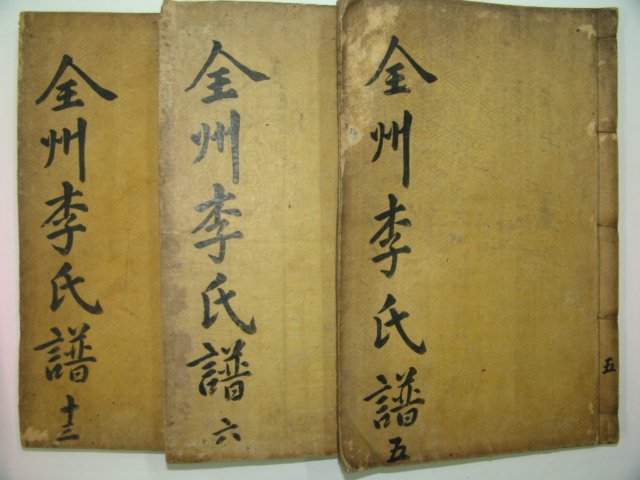 全州李氏譜五
五
全州李氏譜六
全州李氏譜十三